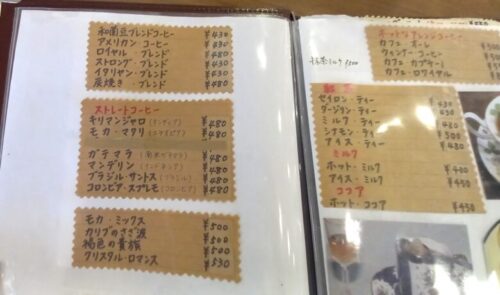 和蘭豆ブレンドコーヒー ¥430
アメリカン コーヒー ¥430
ロイヤル・ブレンド ¥480
ストロング・ブレンド ¥430
イタリヤン・ブレンド ¥430
炭焼き・ブレンド ¥480
ストレートコーヒー
キリマンジャロ ¥480
モカ・マタリ ¥480
ガテマラ ¥480
マンデリン ¥480
ブラジル・サントス (ブラジル) ¥480
コロンビア・スプレモ (コロンビア) ¥480
モカ・ミックス ¥500
カリブのさざ波 ¥500
褐色の貴族 ¥500
クリスタル・ロマンス ¥530
カフェ・オーレ
ウィンナー・コーヒー
カフェ・カプチーノ
カフェ・ロワイヤル
紅茶
セイロン・ティー ¥430
ダージリン・ティー
ミルク・ティー
シナモン・ティー
アイス・ティー
ミルク
ホット・ミルク ¥400
アイス・ミルク ¥450
ココア
ホット・ココア ¥450